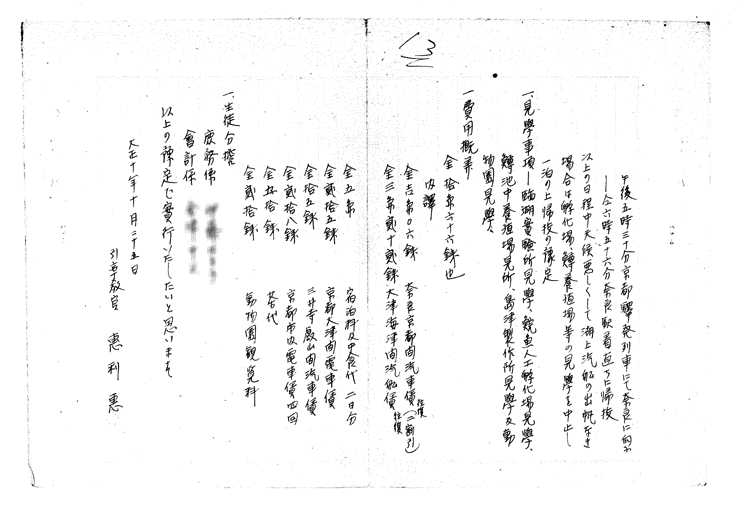 午後五時三十分京都驛発列車にて奈良に向ふ
〃六時五十六分奈良駅着直ちに帰校
以上の日程中天候悪しくして海上汽船の出帆なき
場合は孵化場、鱒養殖場等の見學を中止し
一泊の上帰校の豫定
一、見學事項 臨湖實驗所見學、鮎魚人工孵化場見學、
鱒池中養殖場見所、島津製作所見學及動
物園見學
一費用概算
金拾 六十六銭也
内譯
金 六銭 奈良京都間汽車賃(二割引)往復
金三 貳十貳銭 大津海津間汽船賃 往復
金五 宿泊料及中食代 二日分
金貳拾五銭 京都大津間電車賃
金拾五銭 三井寺 山間汽車賃
金貳拾八銭 京都市内電車賃四回
金五拾銭 代
金貳拾銭 動物園観覧料
一、生徒分擔
庶務係
會計係
以上の豫定で實行いたしたいと思います
大正十年十月二十五日
引率教官 惠利惠
13